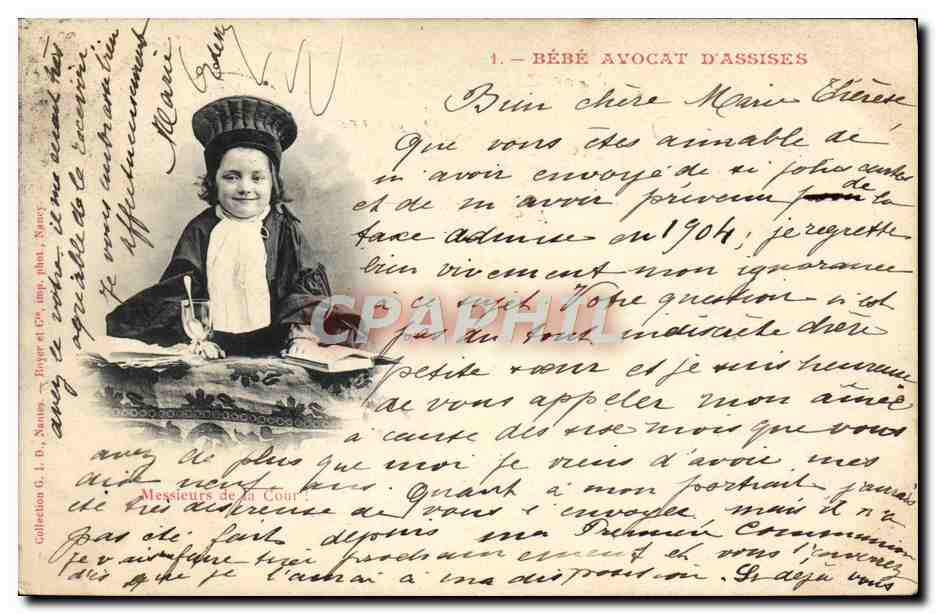 1. — BÉBÉ AVOCAT D'ASSISES
Bien chère Marie Thérèse
Que vous êtes aimable de
m'avoir envoyé de si jolies cartes
et de m'avoir prévenu de la
taxe admise en 1904; je regrette
bien vivement mon ignorance
à ce sujet Votre question n'est
pas du tout indiscrète chère
petite sœur et je suis heureuse
de vous appeler mon aînée
à cause des six mois que vous
avez de plus que moi je viens d'avoir mes
dix neuf ans. Quant à mon portrait j'aurais
été très désireuse de vous l'envoyer mais il n'a
pas été fait depuis ma Première Communion
Je vais faire tirer prochainement et vous l'enverrez
dès que je l'aurai à ma disposition. Si déjà vous
avez le votre il me serait très
agréable de le recevoir
Je vous embrasse bien
affectueusement
Marie
Messieurs de la Cour !
Collection G. I. D., Nantes. — Royer et Cie, imp. phot., Nancy.
CPAPHIL